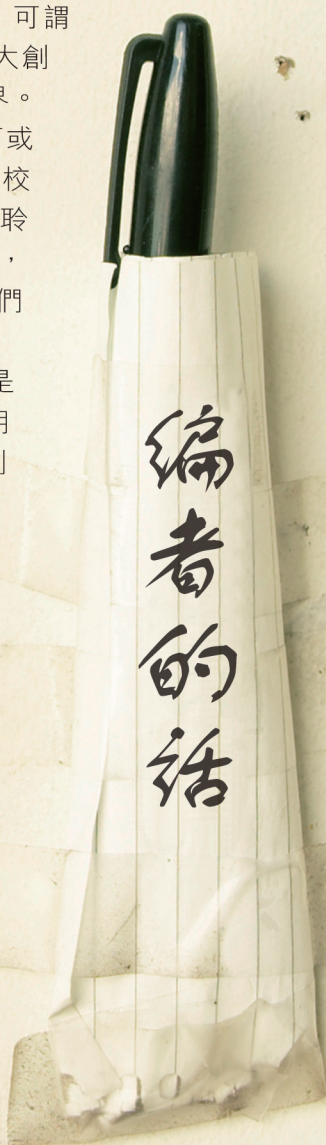 可謂
大創
。
或
校
聆
，
們
是
編者的話